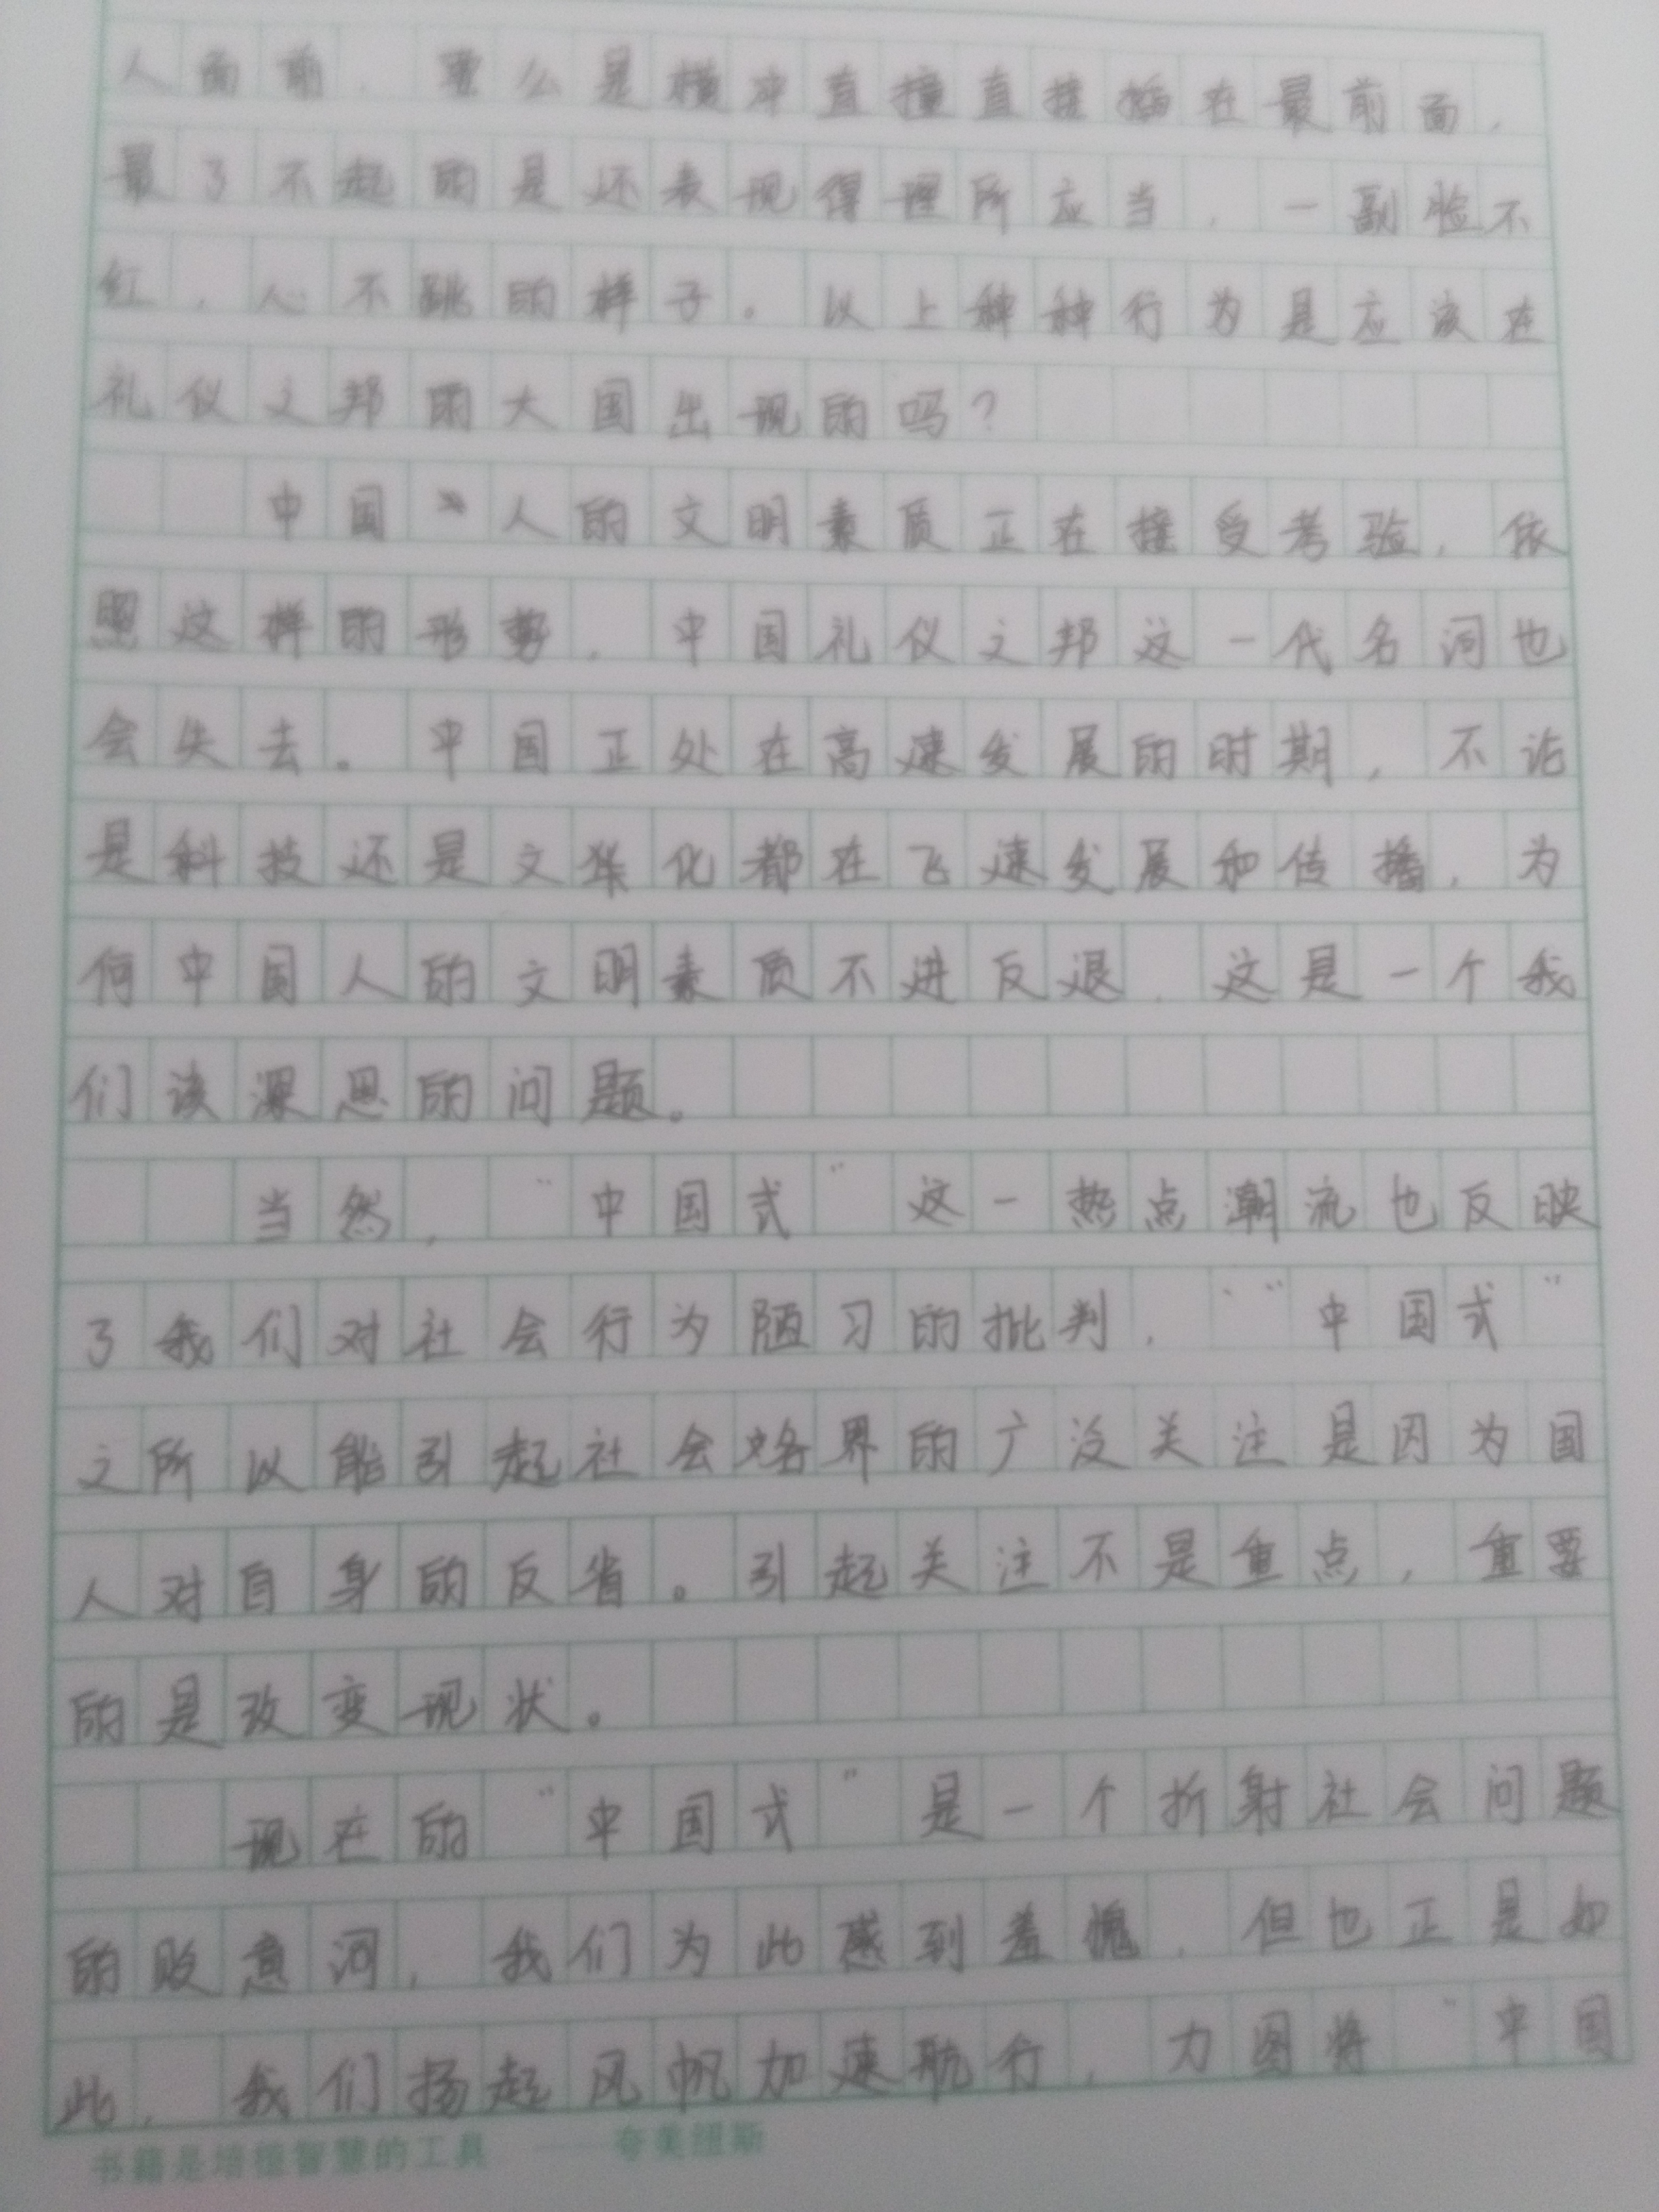 人面前，要么是横冲直撞直接插在最前面，
最了不起的是还表现得理所应当，一副脸不
红，心不跳的样子。以上种种行为是应该在
礼仪之邦的大国出现的吗？
中国人的文明素质正在接受考验，依
照这样的形势，中国礼仪之邦这一代名词也
会失去。中国正处在高速发展的时期，不论
是科技还是文华化都在飞速发展和传播，为
何中国人的文明素质不进反退，这是一个我
们该深思的问题。
当然，“中国式”这一热点潮流也反映
了我们对社会行为陋习的批判，“中国式”
之所以能引起社会各界的广泛关注是因为国
人对自身的反省。引起关注不是重点，重要
的是改变现状。
现在的“中国式”是一个折射社会问题
的贬意词，我们为此感到羞愧，但也正是如
此，我们扬起风帆加速航行，力图将“中国
书籍是培植智慧的工具 ——夸美纽斯